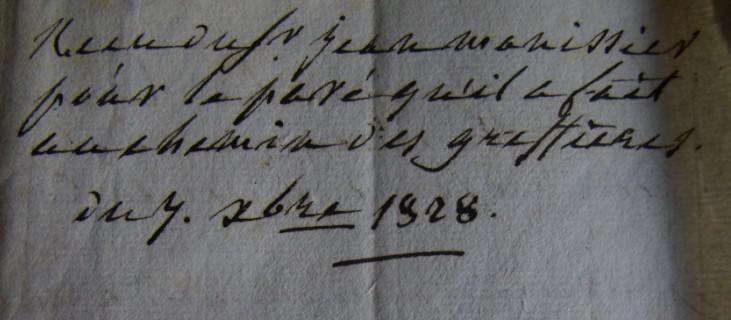 Recu du Sr jean monissier
pour le pavé qu'il a fait
au chemin des greffieres.
du 7. xbre 1828.